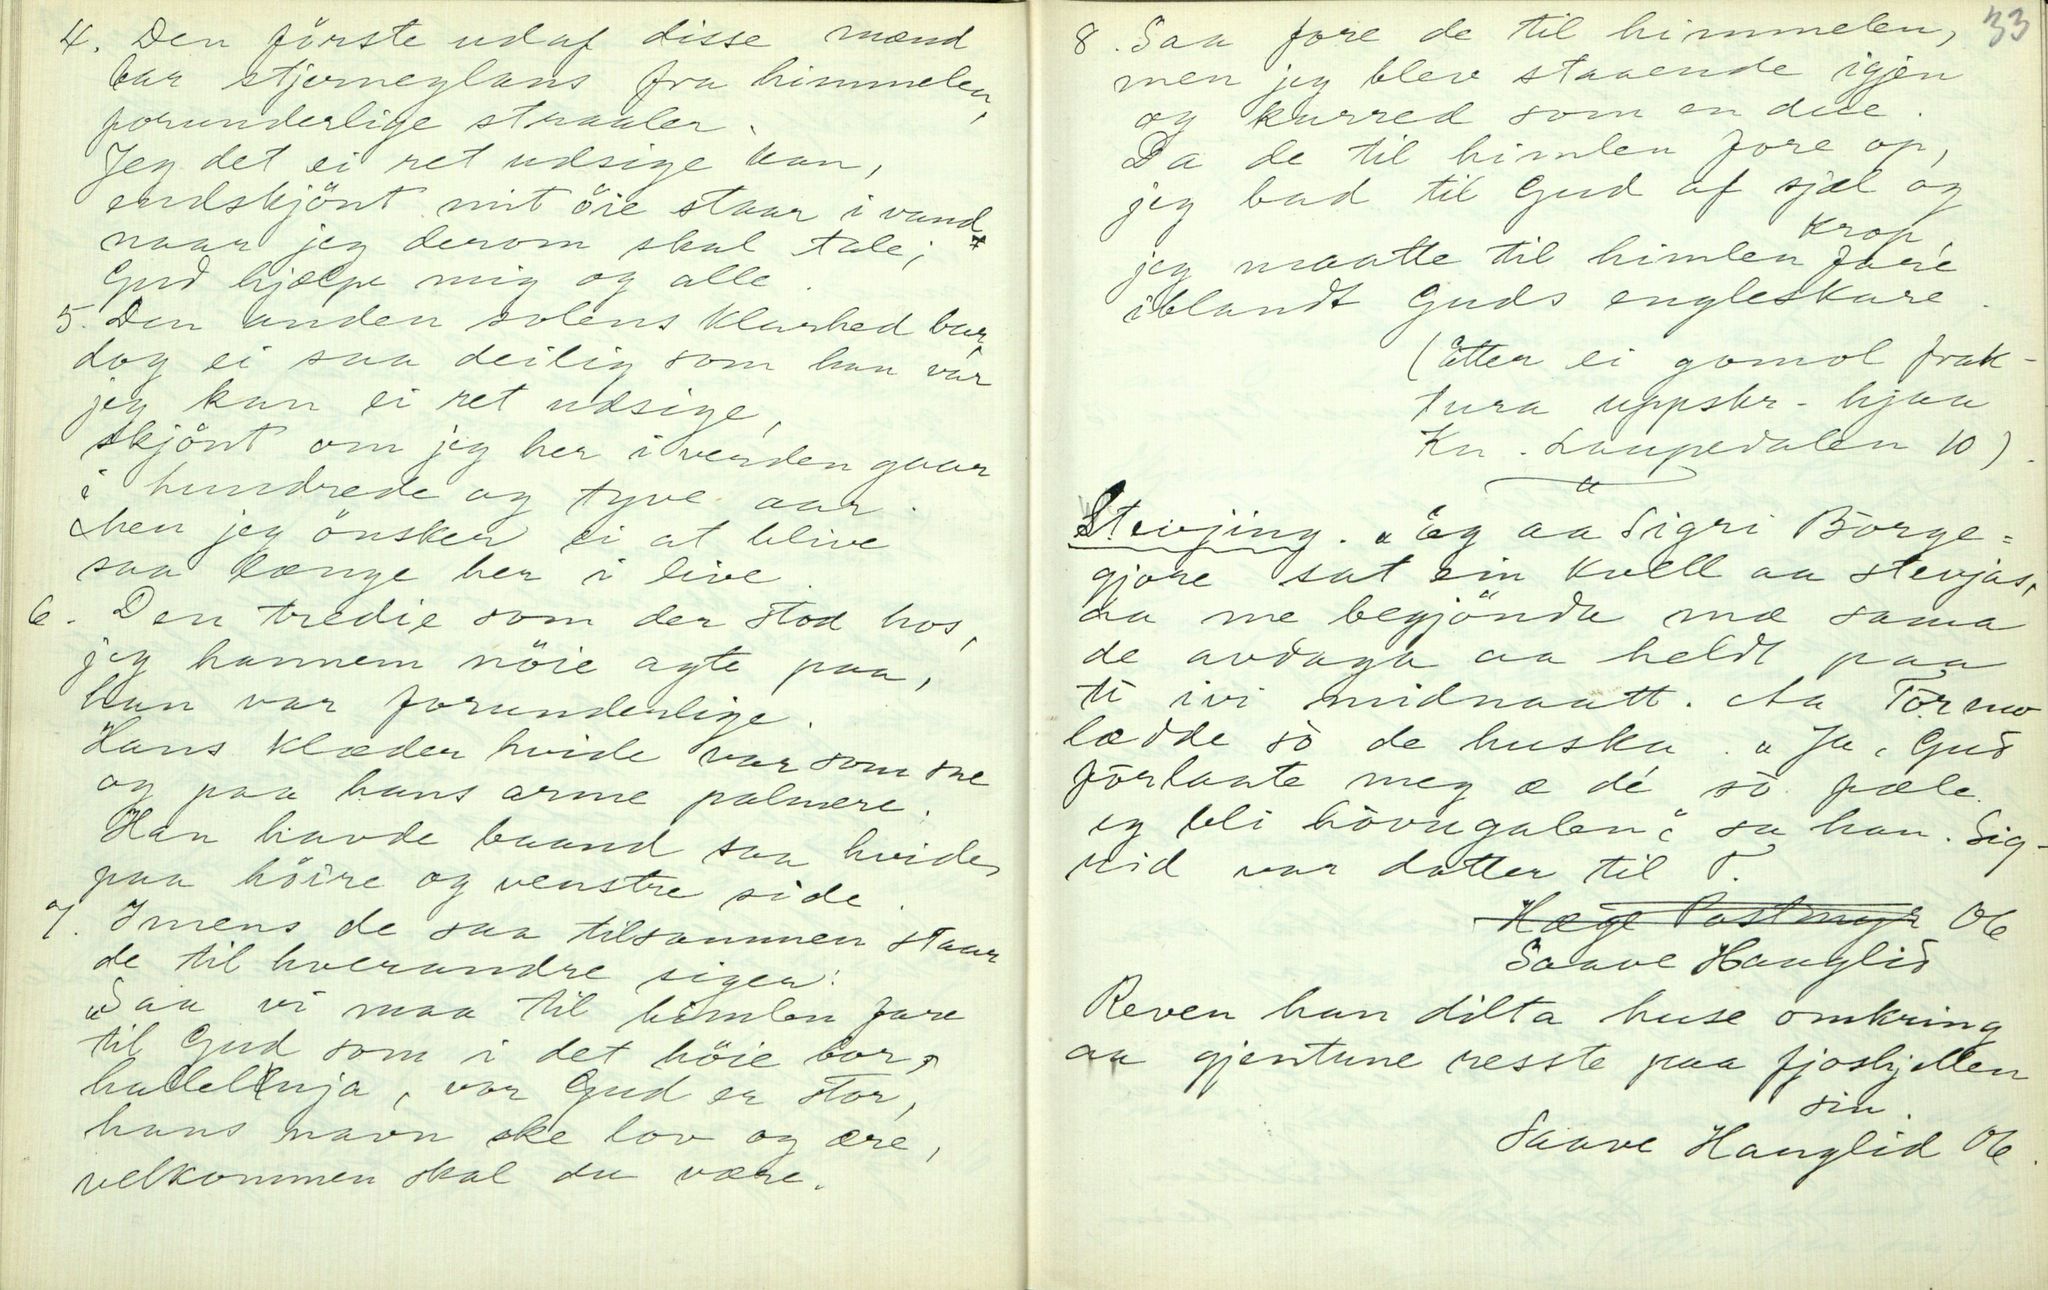 4. Den förste udaf disse mænd
bar stjerneglans fra himmelen,
forunderlige straaler.
Jeg det ei ret udsige kan,
endskjönt mit öie staar i vand
naar jeg derom skal tale;
Gud hjælpe mig og alle.
5. Den anden solens klarhed bar,
dog ei saa deilig som han var
jeg kan ei ret udsige,
skjönt om jeg her i verden gaar
i hundrede og tyve aar.
Men jeg önsker ei at blive
saa længe her i live.
6. Den tredie som der stod hos,
jeg hannem nöie agte paa,
han var forunderlige.
Hans klæder hvide var som sne
og paa hans arme palmere.
Han havde baand saa hvide,
paa höire og venstre side.
7. Imens de saa tilsammen staar
de til hverandre siger:
"Saa vi maa til himlen fare
til Gud som i det höie bor,
halleluja, vor Gud er stor,
hans navn ske lov og ære,
velkommen skal du være.
33
8. Saa fore de til himmelen,
men jeg blev staaende igjen
og kurred som en due.
Da de til himlen fore op,
jeg bad til Gud af sjæl og
krop,
jeg maatte til himlen fare
iblandt Guds engleskare.
(Etter ei gomol frak-
tura uppskr. hjaa
Kn. Laupedalen 10).
Stevjing. "Eg aa Sigri Börge=
gjore sat ein kvell aa stevjas,
aa me begjönda mæ sama
de avdaga aa heldt paa
ti ivi midnaatt. Aa Tormo
lædde so de huska. "Ja, Gud
förlaate meg æ de so fæle
eg bli hövugalen", sa han. Sig-
rid var datter til T.
Hæge Postmyr 06
Saave Hauglid
Reven han dilta huse omkring
aa gjentune resste paa fjoshjellen
sin.
Saave Hauglid 06.